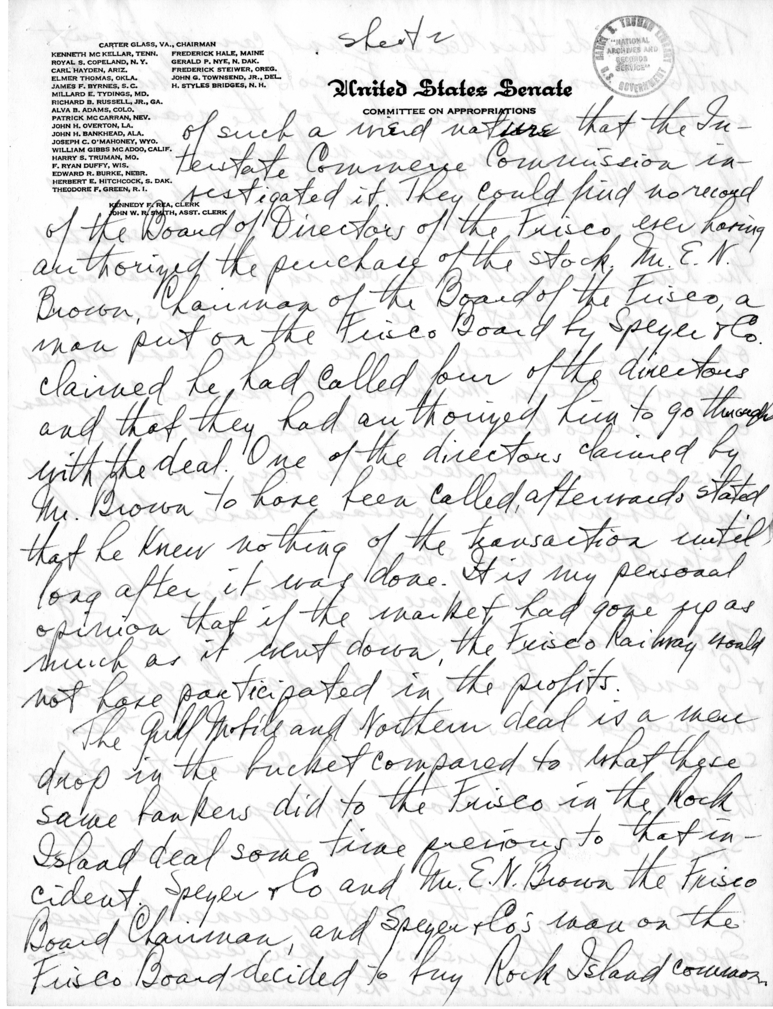 Sheet 2
CARTER GLASS, VA., CHAIRMAN
KENNETH MC KELLAR, TENN. FREDERICK HALE, MAINE
ROYAL S. COPELAND, N. Y. GERALD P. NYE, N. DAK.
CARL HAYDEN, ARIZ. FREDERICK STEIWER, OREG.
ELMER THOMAS, OKLA. JOHN G. TOWNSEND, JR., DEL.
JAMES F. BYRNES, S. C. H. STYLES BRIDGES, N. H.
MILLARD E. TYDINGS, MD.
RICHARD B. RUSSELL, JR., GA.
ALVA B. ADAMS, COLO.
PATRICK MC CARRAN, NEV.
JOHN H. OVERTON, LA.
JOHN H. BANKHEAD, ALA.
JOSEPH C. O'MAHONEY, WYO.
WILLIAM GIBBS MC ADOO, CALIF.
HARRY S. TRUMAN, MO.
F. RYAN DUFFY, WIS.
EDWARD R. BURKE, NEBR.
HERBERT E. HITCHCOCK, S. DAK.
THEODORE F. GREEN, R. I.
KENNEDY F. REA, CLERK
JOHN W. R. SMITH, ASST. CLERK
HARRY S. TRUMAN LIBRARY
"NATIONAL
ARCHIVES AND
RECORDS
SERVICE"
U.S. GOVERNMENT
United States Senate
COMMITTEE ON APPROPRIATIONS
of such a wierd nature that the In-
terstate Commerce Commission in-
vestigated it. They could find no record
of the Board of Directors of the Frisco ever having
authorized the purchase of the stock. Mr. E. N.
Brown, Chairman of the Board of the Frisco, a
man put on the Frisco Board by Speyer & Co.
claimed he had called four of the directors
and that they had authorized him to go through
with the deal. One of the directors claimed by
Mr. Brown to have been called, afterwards stated
that he knew nothing of the transaction until
long after it was done. It is my personal
opinion that if the market had gone up as
much as it went down, the Frisco Railway would
not have participated in the profits.
The Gulf Mobile and Northern deal is a mere
drop in the bucket compared to what these
same bankers did to the Frisco in the Rock
Island deal some time previous to that in-
cident. Speyer & Co and Mr. E. N. Brown the Frisco
Board Chairman, and Speyer & Co's man on the
Frisco Board decided to buy Rock Island common